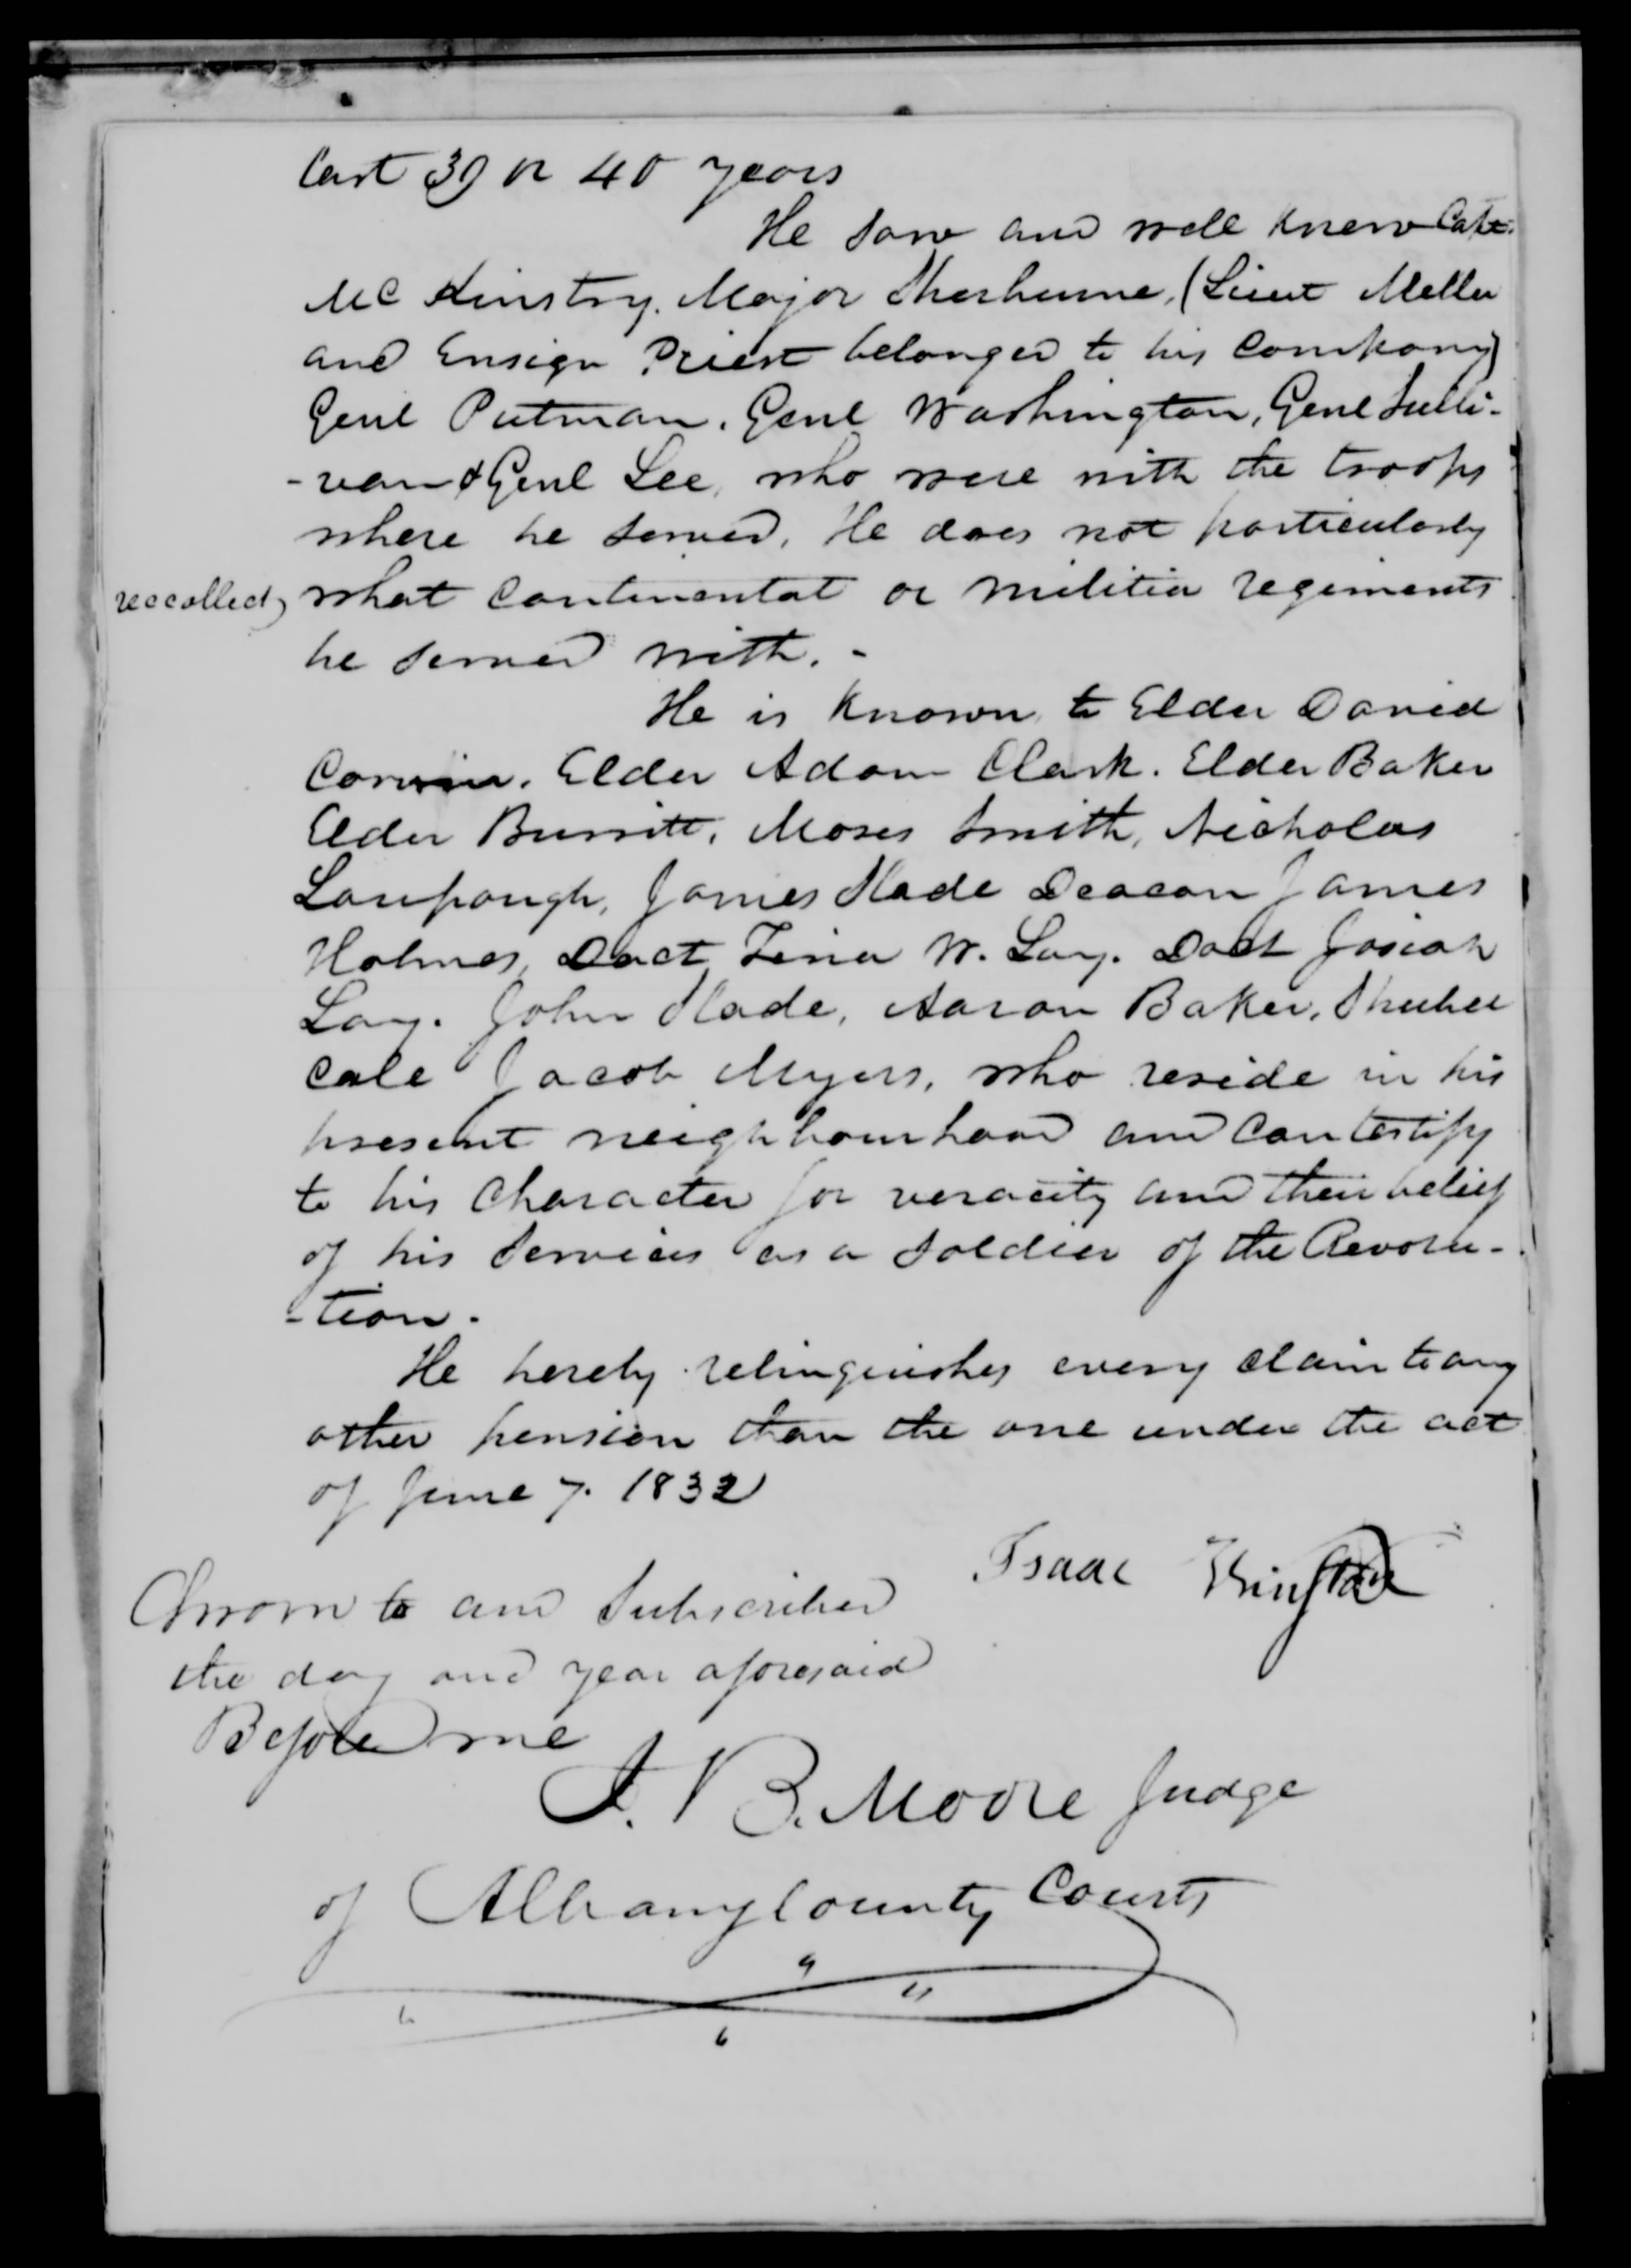 last 39 or 40 years
He saw and well knew Capt.
McKinstry. Major Sherburne, (Lieut Meller
and Ensign Priest belonged to his company)
Genl Putman. Genl Washington, Genl Sulli-
-van & Genl Lee, who were with the troops
where he served. He does not particularly
reccollect, what continental or militia regiments
he served with. -
He is known to Elder David
Corwin. Elder Adam Clark. Elder Baker
Elder Burritt. Moses Smith, Nicholas
James Slade Deacon James
Holmes, Doct W. Lay. Doct Josiah
Lay. John Slade, Aaron Baker, Shubel
Cole Jacob Myers, who reside in his
present neighbourhood and can testify
to his character for veracity and their belief
of his services as a soldier of the Revolu-
-tion.
He hereby relinquishes every claim to any
other pension than the one under the act
of June 7. 1832
Isaac
Sworn to and subscribed
the day and year aforesaid
Before me
J. B. Moore Judge
of Albany County Courts